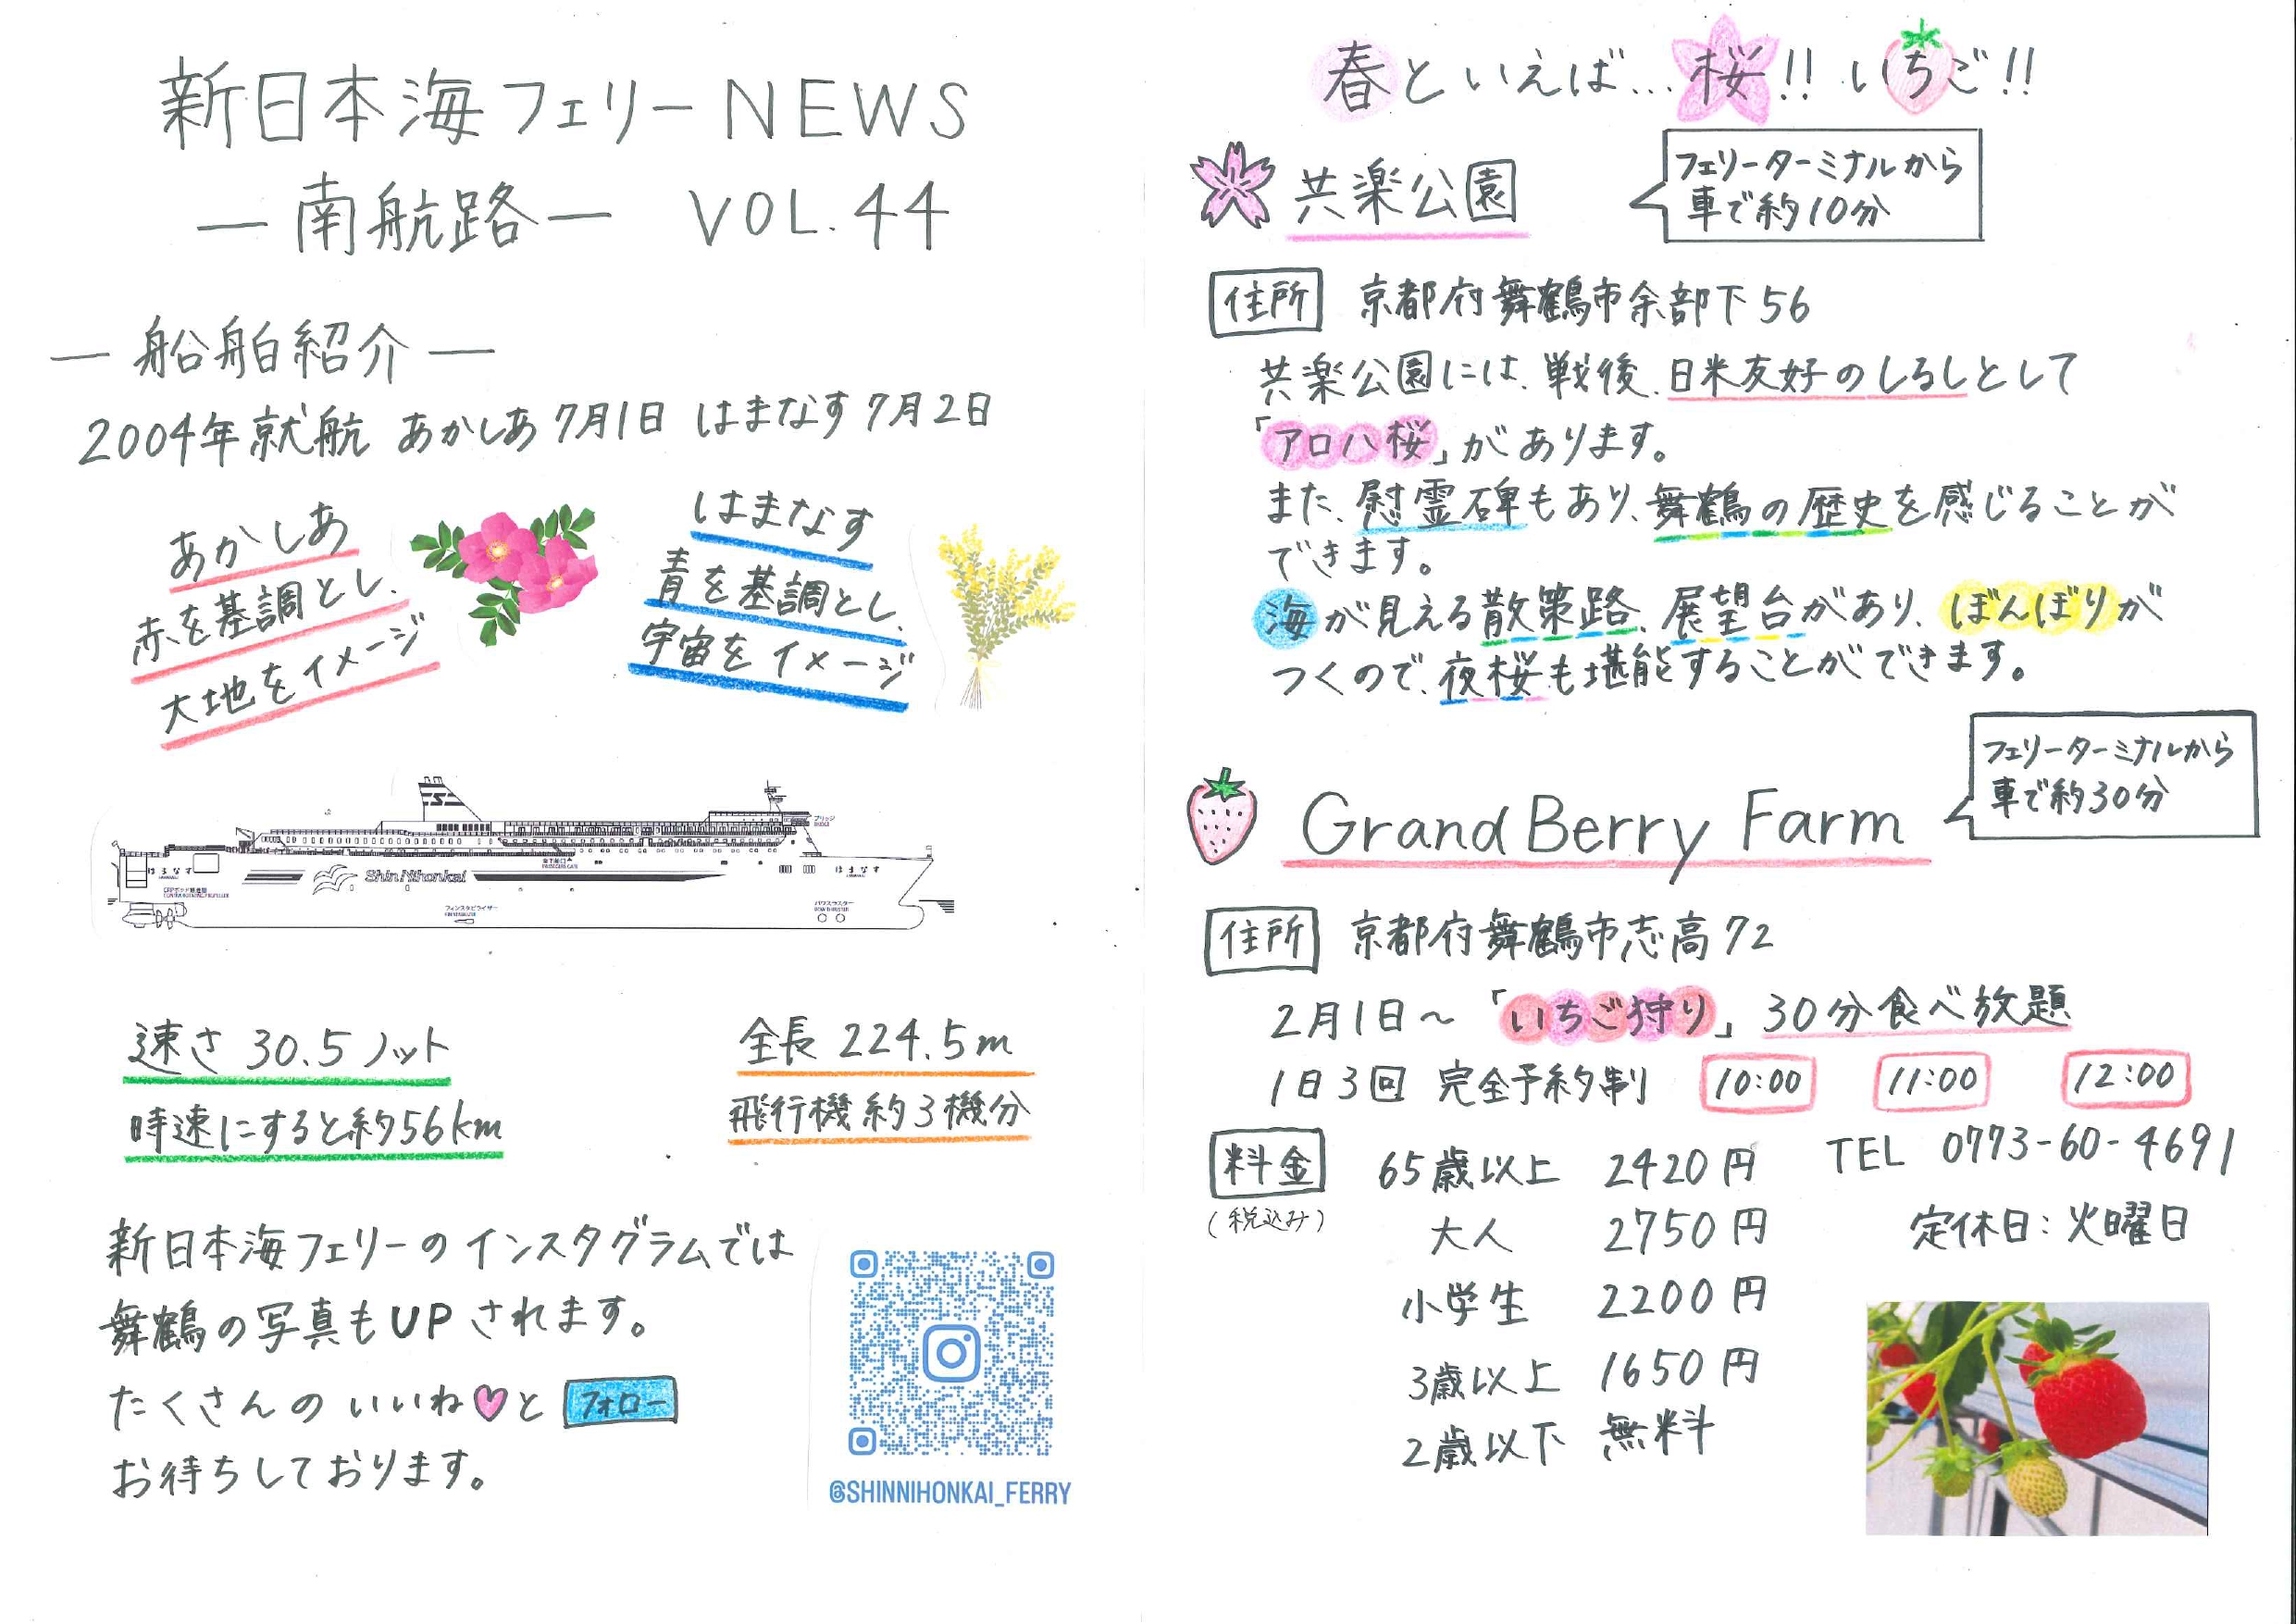 新日本海フェリーNEWS
―南航路― VOL.44
―船舶紹介―
2004年就航 あかしあ7月1日 はまなす7月2日
あかしあ
赤を基調とし、
大地をイメージ
はまなす
青を基調とし、
宇宙をイメージ
ブリッジ
はまなす
ShinNihonkai
はまなす
フィンスタビライザー
バウスラスター
速さ 30.5ノット
時速にすると約56km
全長 224.5m
飛行機約3機分
新日本海フェリーのインスタグラムでは
舞鶴の写真もUPされます。
たくさんのいいね♡と フォロー
お待ちしております。
@SHINNIHONKAI_FERRY
春といえば…桜!! いちご!!
共楽公園
フェリーターミナルから
車で約10分
住所 京都府舞鶴市余部下56
共楽公園には、戦後、日米友好のしるしとして
「アロハ桜」があります。
また、慰霊碑もあり、舞鶴の歴史を感じることが
できます。
海が見える散策路、展望台があり、ぼんぼりが
つくので、夜桜も堪能することができます。
Grand Berry Farm
フェリーターミナルから
車で約30分
住所 京都府舞鶴市志高72
2月1日～「いちご狩り」30分食べ放題
1日3回 完全予約制 10:00 11:00 12:00
料金 65歳以上 2420円 TEL 0773-60-4691
(税込み) 大人 2750円 定休日:火曜日
小学生 2200円
3歳以上 1650円
2歳以下 無料